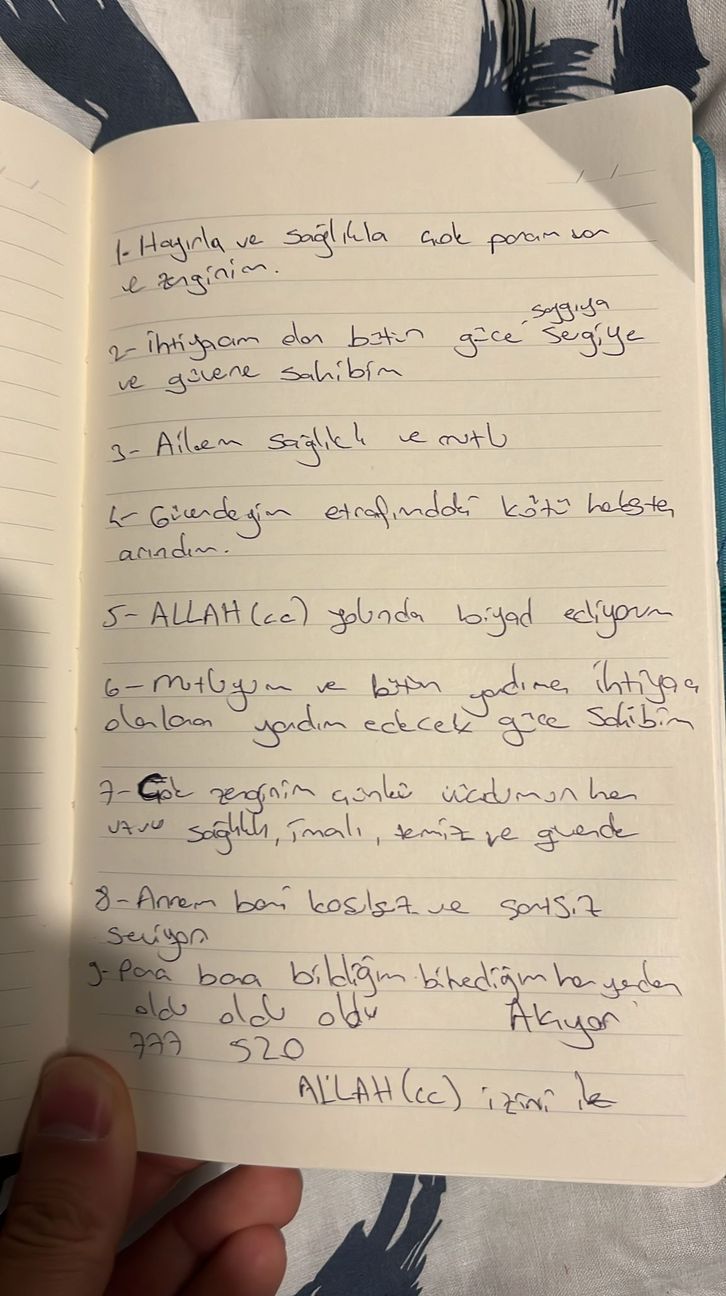 1- Hayırla ve sağlıkla çok param var
ve zenginim.
saygıya
2- ihtiyacım olan bütün güce sevgiye
ve güvene sahibim
3- Ailem sağlıklı ve mutlu
4- Güvendeyim etrafımdaki kötü herkesten
arındım.
5- ALLAH(cc) yolunda ediyorum
6- mutluyum ve bütün yardıma ihtiyacı
olanlara yardım edecek güce sahibim
7- Çok zenginim çünkü vücudumun her
uzvu sağlıklı, imanlı, temiz ve güvende
8- Annem beni koşulsuz ve
seviyor
9- Para bana bildiğim bilmediğim her yerden
oldu oldu oldu Akıyor
777 520
ALLAH(cc) izini ile